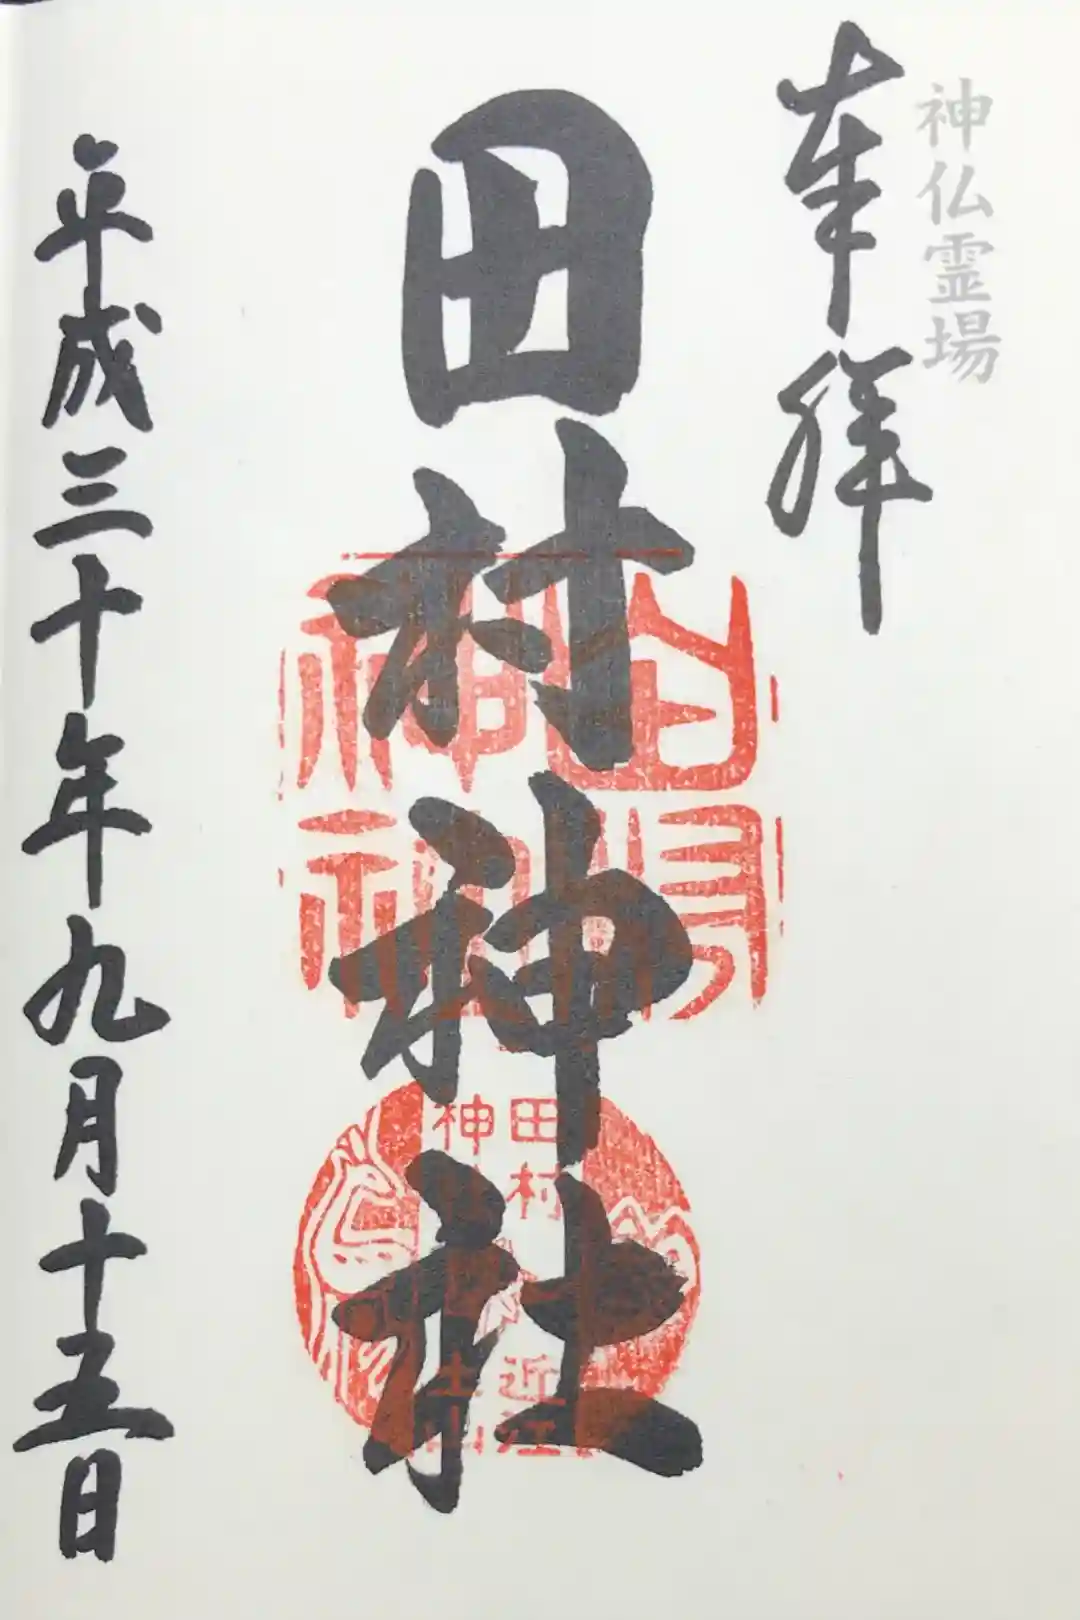 神仏霊場
奉拝
田村神社
田村
神社
田村
神社
近江
土山
平成三十年九月十五日